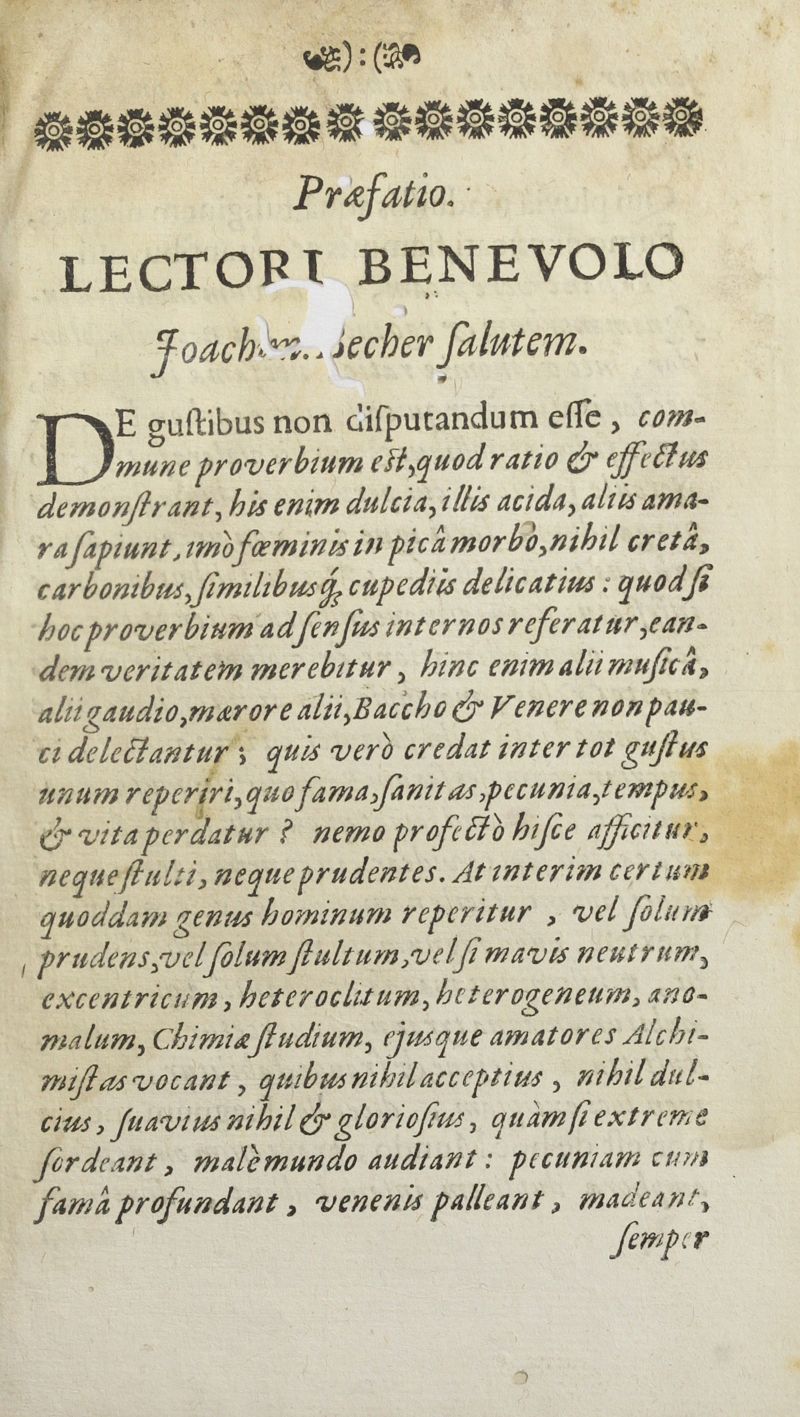 ):(
Præfatio.
LECTORI BENEVOLO
ſalutem.
DE guſtibus non diſputandum eſſe, com-
mune proverbium eſt, quod ratio & effectus
demonſtrant, his enim dulcia, illis acida, aliis ama-
ra ſapiunt, imò fœminis in picâ morbò, nihil cretâ,
carbonibus, ſimilibusq́; cupediis delicatius: quodſi
hoc proverbium ad ſenſus internos referatur, ean-
dem veritatem merebitur, hinc enim alii muſicâ,
alii gaudio, mærore alii, Baccho & Venere non pau-
ci delectantur; quis verò credat inter tot guſtus
unum reperiri, quo fama, ſanitas, pecunia, tempus,
& vita perdatur? nemo profectò hiſce afficitur,
neque ſtulti, neque prudentes. At interim certum
quoddam genus hominum reperitur, vel ſolum
prudens, vel ſolum ſtultum, vel ſi mavis neutrum,
excentricum, heteroclitum, heterogeneum, ano-
malum, Chimiæ ſtudium, ejusque amatores Alchi-
miſtas vocant, quibus nihil acceptius, nihil dul-
cius, ſuavius nihil & glorioſius, quàm ſi extreme
ſordeant, malè mundo audiant: pecuniam cum
famâ profundant, venenis palleant, madeant,
ſemper